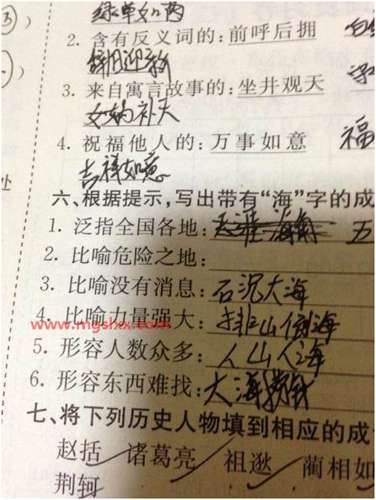 绿草如茵
2. 含有反义词的:前呼后拥
辞旧迎新
3. 来自寓言故事的:坐井观天
女娲补天
4. 祝福他人的:万事如意 福
吉祥如意
六、根据提示,写出带有“海”字的成
1. 泛指全国各地:天涯海角 五
2. 比喻危险之地:
3. 比喻没有消息:石沉大海
4. 比喻力量强大:排山倒海
www.mgslxx.com
5. 形容人数众多:人山人海
6. 形容东西难找:大海捞针
七、将下列历史人物填到相应的成
赵括 诸葛亮 祖逖 蔺相如
荆轲